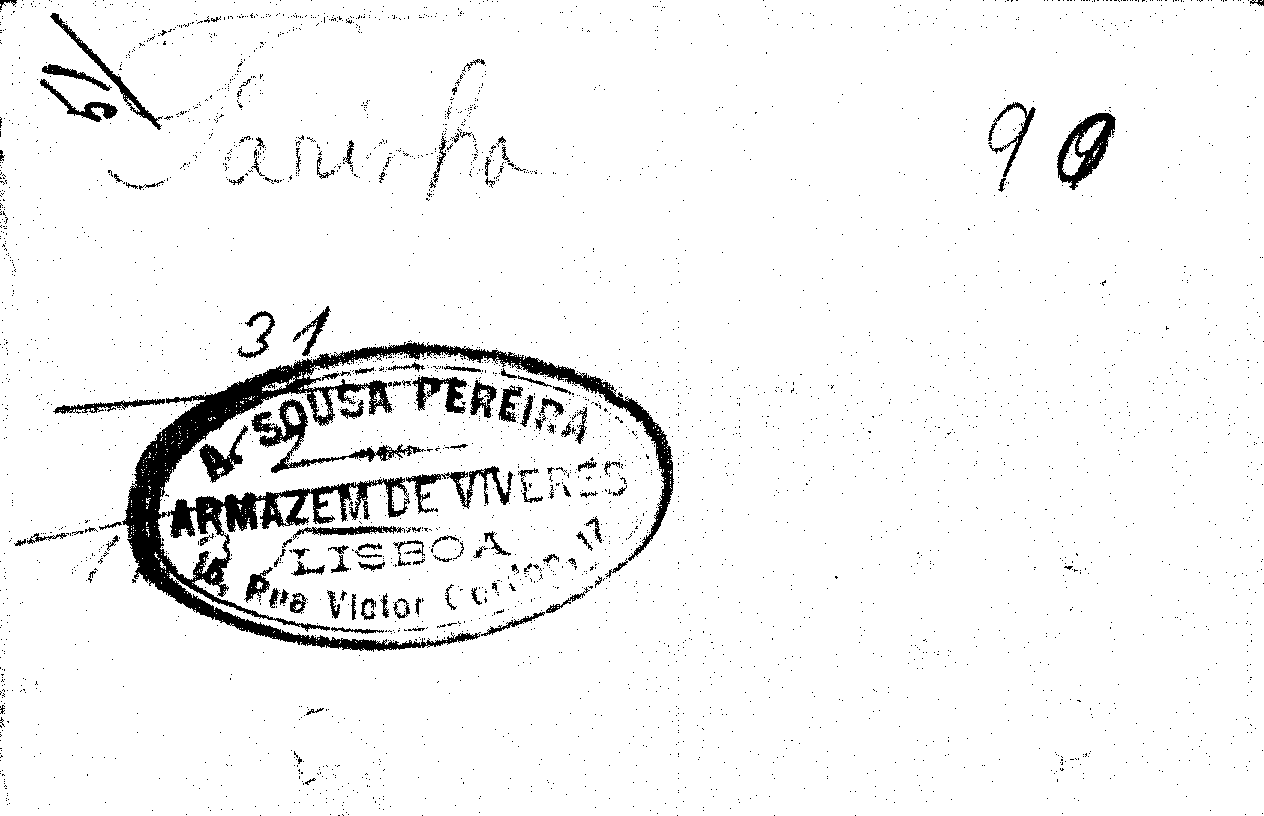 51
Farinha
9 9
31
A. SOUSA PEREIRA
ARMAZEM DE VIVERES
LISBOA
15, Rua Victor Cordon, 17